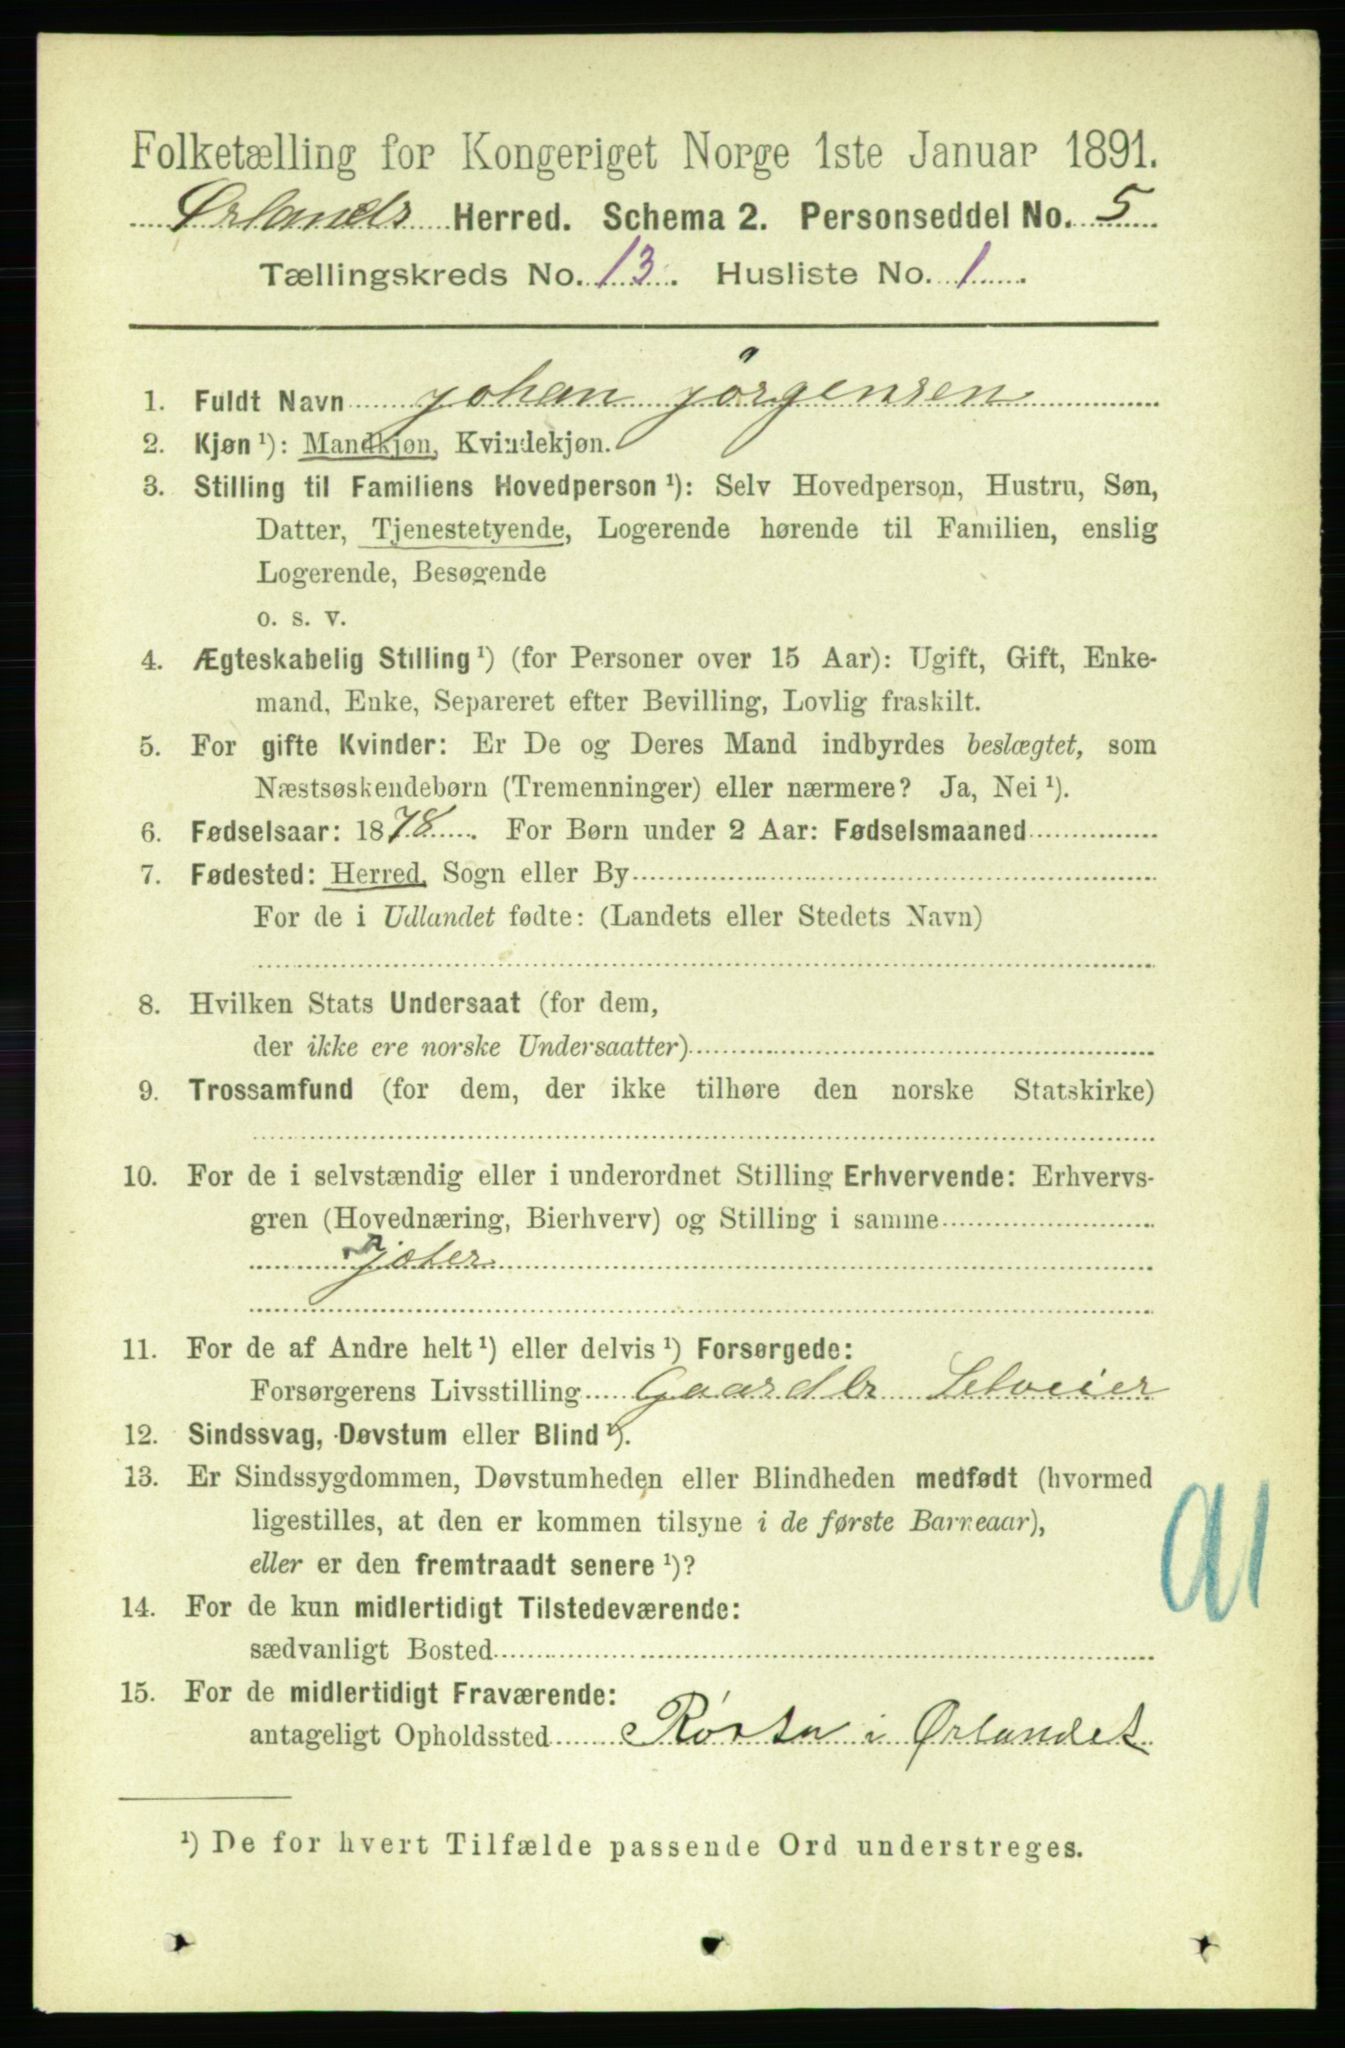 Folketælling for Kongeriget Norge 1ste Januar 1891.
Ørlands Herred. Schema 2. Personseddel No. 5
Tællingskreds No. 13. Husliste No. 1
1. Fuldt Navn Johan Jörgensen
2. Kjøn ¹): Mandkjøn, Kvindekjøn.
3. Stilling til Familiens Hovedperson ¹): Selv Hovedperson, Hustru, Søn,
Datter, Tjenestetyende, Logerende hørende til Familien, enslig
Logerende, Besøgende
o. s. v.
4. Ægteskabelig Stilling ¹) (for Personer over 15 Aar): Ugift, Gift, Enke-
mand, Enke, Separeret efter Bevilling, Lovlig fraskilt.
5. For gifte Kvinder: Er De og Deres Mand indbyrdes beslægtet, som
Næstsøskendebørn (Tremenninger) eller nærmere? Ja, Nei ¹).
6. Fødselsaar: 1878. For Børn under 2 Aar: Fødselsmaaned
7. Fødested: Herred, Sogn eller By
For de i Udlandet fødte: (Landets eller Stedets Navn)
8. Hvilken Stats Undersaat (for dem,
der ikke ere norske Undersaatter)
9. Trossamfund (for dem, der ikke tilhøre den norske Statskirke)
10. For de i selvstændig eller i underordnet Stilling Erhvervende: Erhvervs-
gren (Hovednæring, Bierhverv) og Stilling i samme
11. For de af Andre helt ¹) eller delvis ¹) Forsørgede:
Forsørgerens Livsstilling Gaardbr Selveier
12. Sindssvag, Døvstum eller Blind ¹).
13. Er Sindssygdommen, Døvstumheden eller Blindheden medfødt (hvormed
ligestilles, at den er kommen tilsyne i de første Barneaar),
eller er den fremtraadt senere ¹)?
14. For de kun midlertidigt Tilstedeværende:
sædvanligt Bosted
15. For de midlertidigt Fraværende:
antageligt Opholdssted i Ørlandet
¹) De for hvert Tilfælde passende Ord understreges.